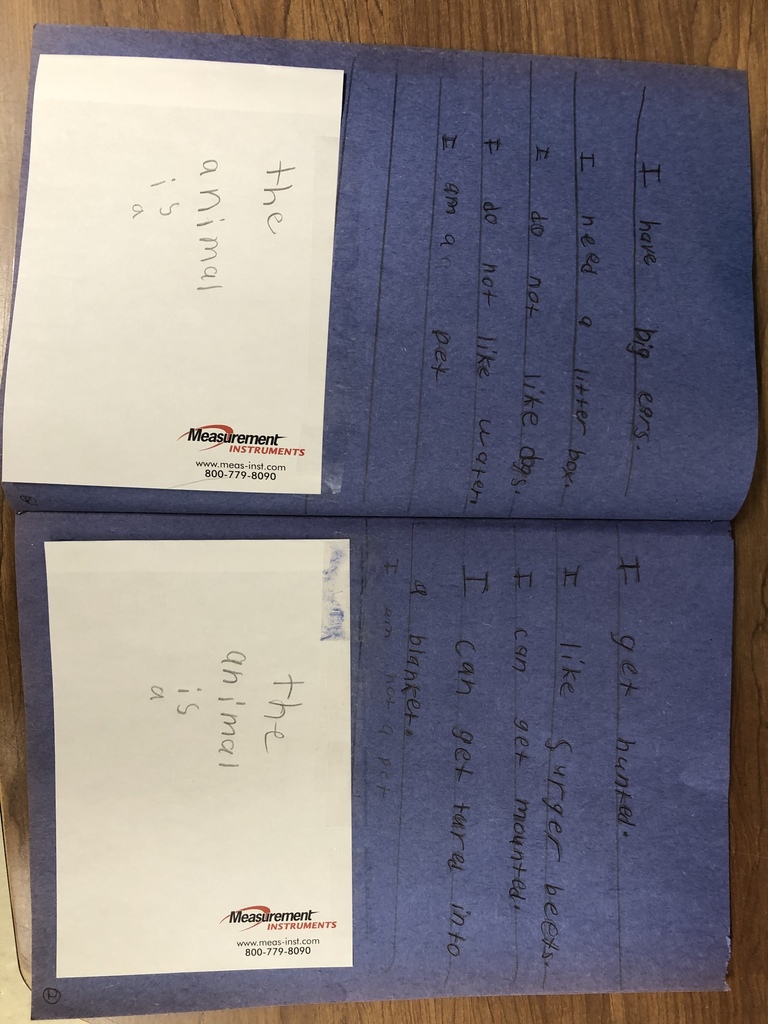 I have big ears.
I need a litter box.
I do not like dogs.
I do not like water.
I am a pet
the
animal
is
a
Measurement
INSTRUMENTS
www.meas-inst.com
800-779-8090
I get hunted.
I like surger beets.
I can get mounted.
I can get tured into
a blanket.
I am not a pet
the
animal
is
a
Measurement
INSTRUMENTS
www.meas-inst.com
800-779-8090
2